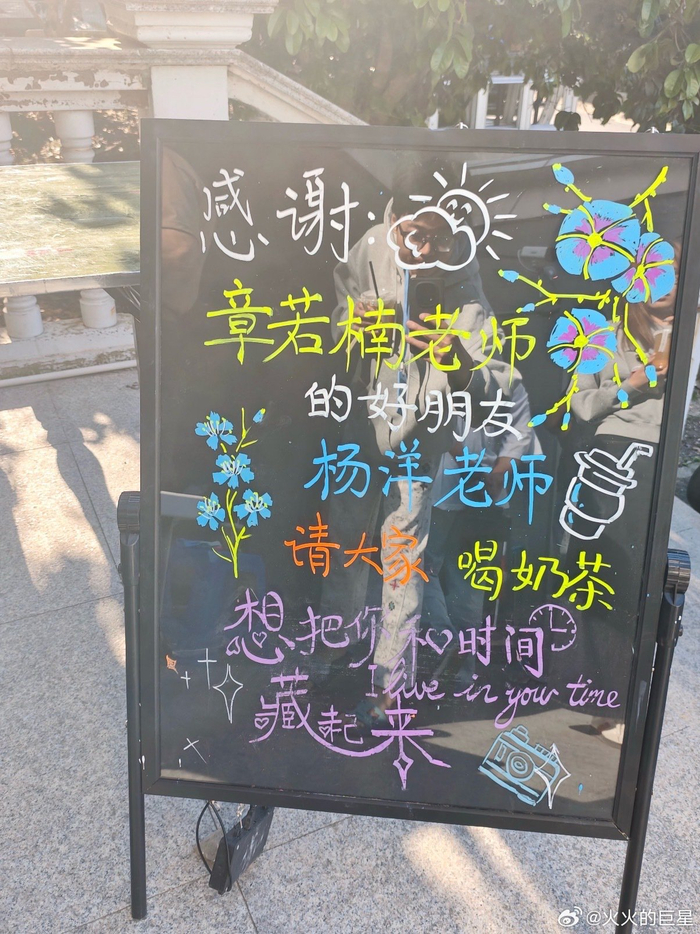 感谢:
章若楠老师
的好朋友
杨洋老师
请大家 喝奶茶
想把你和时间
I live in your time
藏起来
@火火的巨星